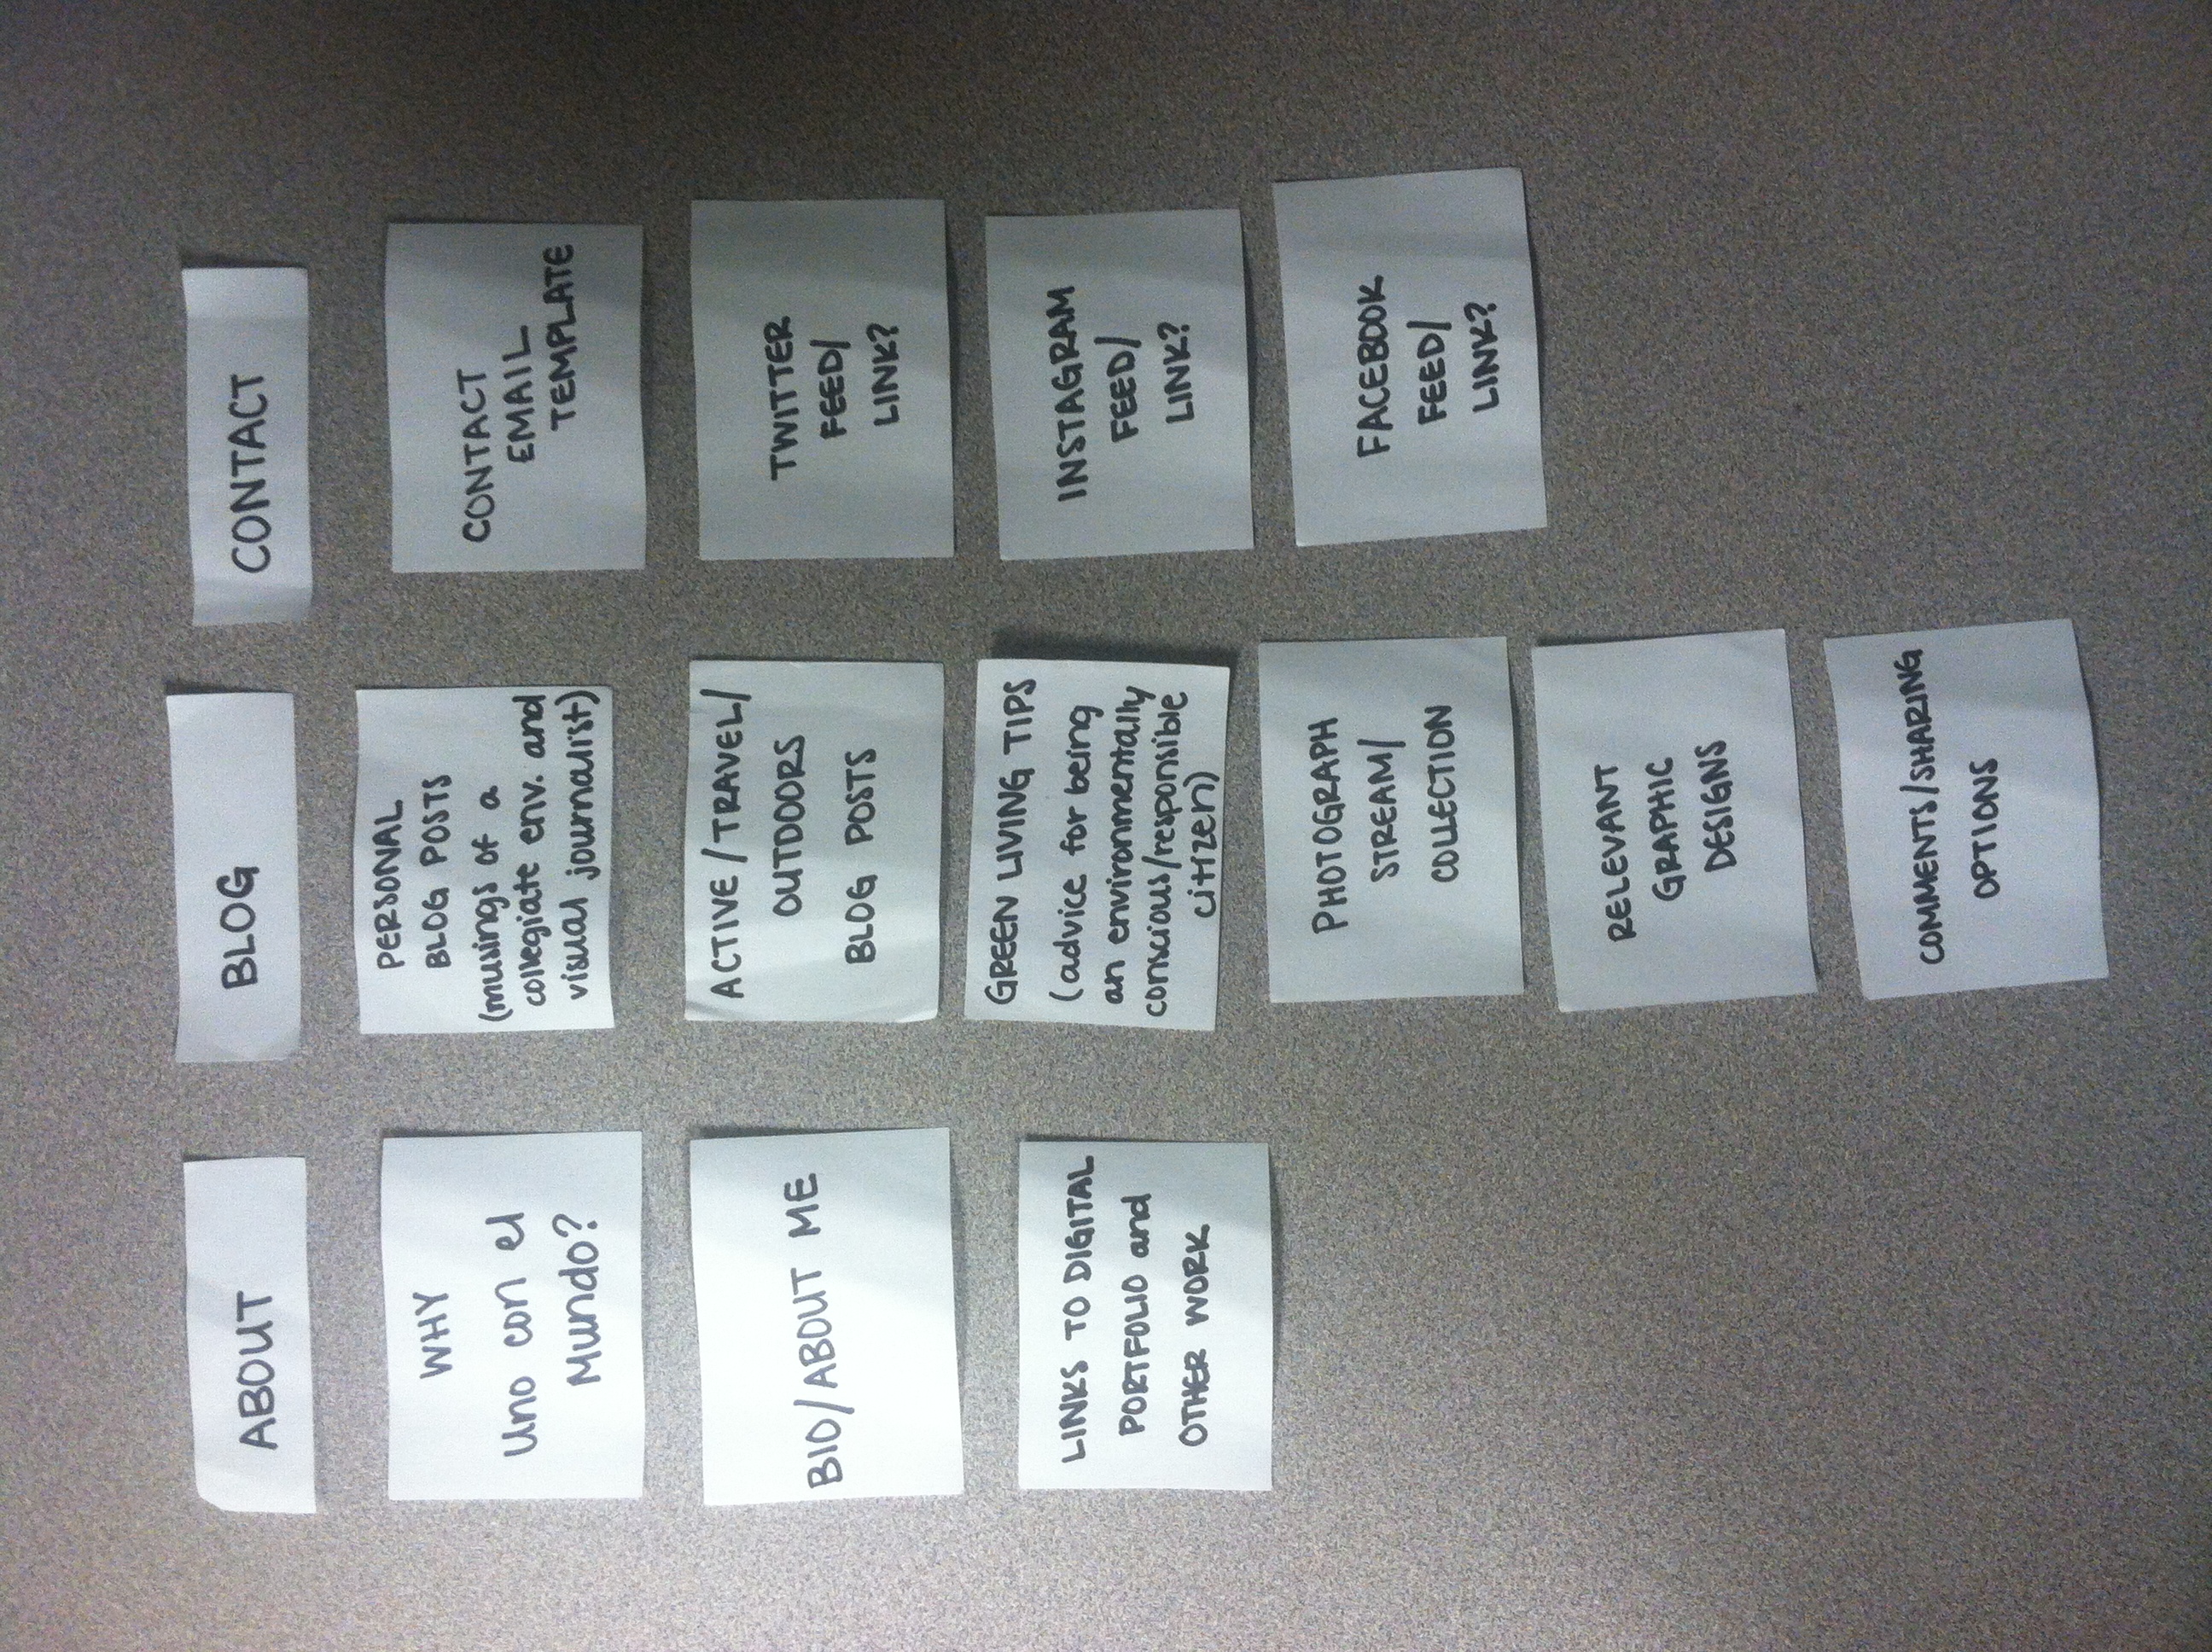 ABOUT
WHY
Uno con el
Mundo?
BIO/ABOUT ME
LINKS TO DIGITAL
PORTFOLIO and
OTHER WORK
BLOG
PERSONAL
BLOG POSTS
(musings of a
collegiate env. and
visual journalist)
ACTIVE/TRAVEL/
OUTDOORS
BLOG POSTS
GREEN LIVING TIPS
(advice for being
an environmentally
conscious/responsible
citizen)
PHOTOGRAPH
STREAM/
COLLECTION
RELEVANT
GRAPHIC
DESIGNS
COMMENTS/SHARING
OPTIONS
CONTACT
CONTACT
EMAIL
TEMPLATE
TWITTER
FEED/
LINK?
INSTAGRAM
FEED/
LINK?
FACEBOOK
FEED/
LINK?